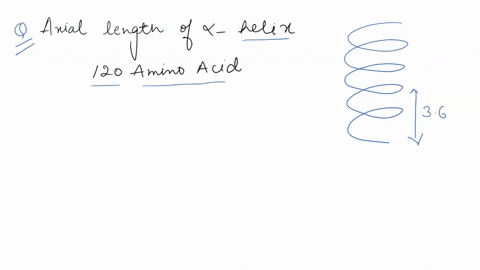 Q Axial length of α- helix
120 Amino Acid
3.6